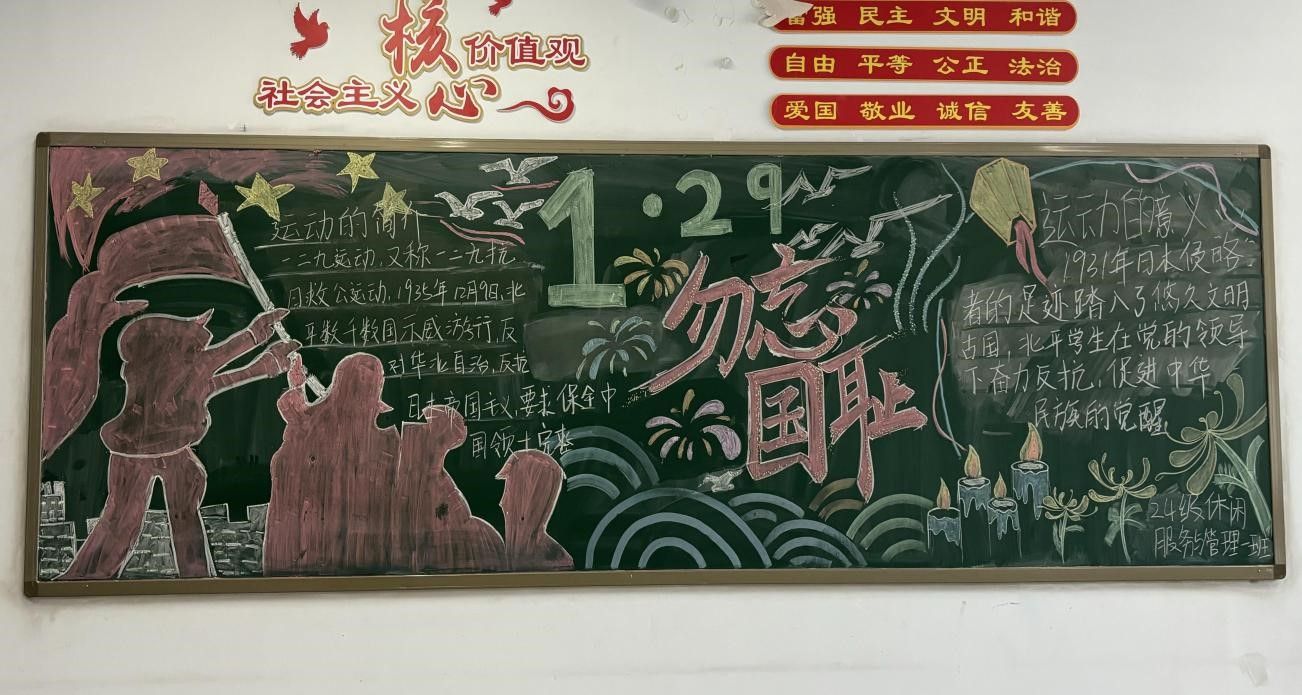 社会主义核心价值观
富强 民主 文明 和谐
自由 平等 公正 法治
爱国 敬业 诚信 友善
1·29
勿忘国耻
运动的简介
一二九运动,又称一二九抗
日救公运动,1935年12月9日,北
平数千数国示威游行,反
对华北自治,反抗
日本帝国主义,要求保全中
国领土完整
运动的意义
1931年日本侵略
者的足迹踏入了悠久文明
古国,北平学生在党的领导
下奋力反抗,促进中华
民族的觉醒
24级休闲
服务与管理一班